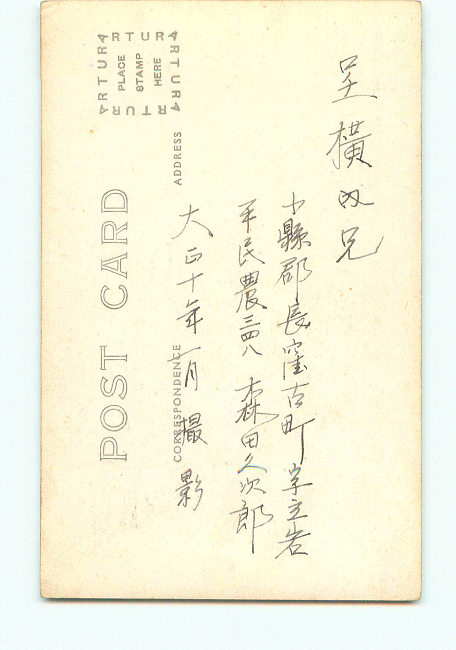 呈 横内兄
小縣郡長窪古町字立岩
平民農三四八 森田久次郎
大正十年一月撮影
POST CARD
CORRESPONDENCE
ADDRESS
ARTURA
PLACE
STAMP
HERE
ARTURA
ARTURA
ARTURA